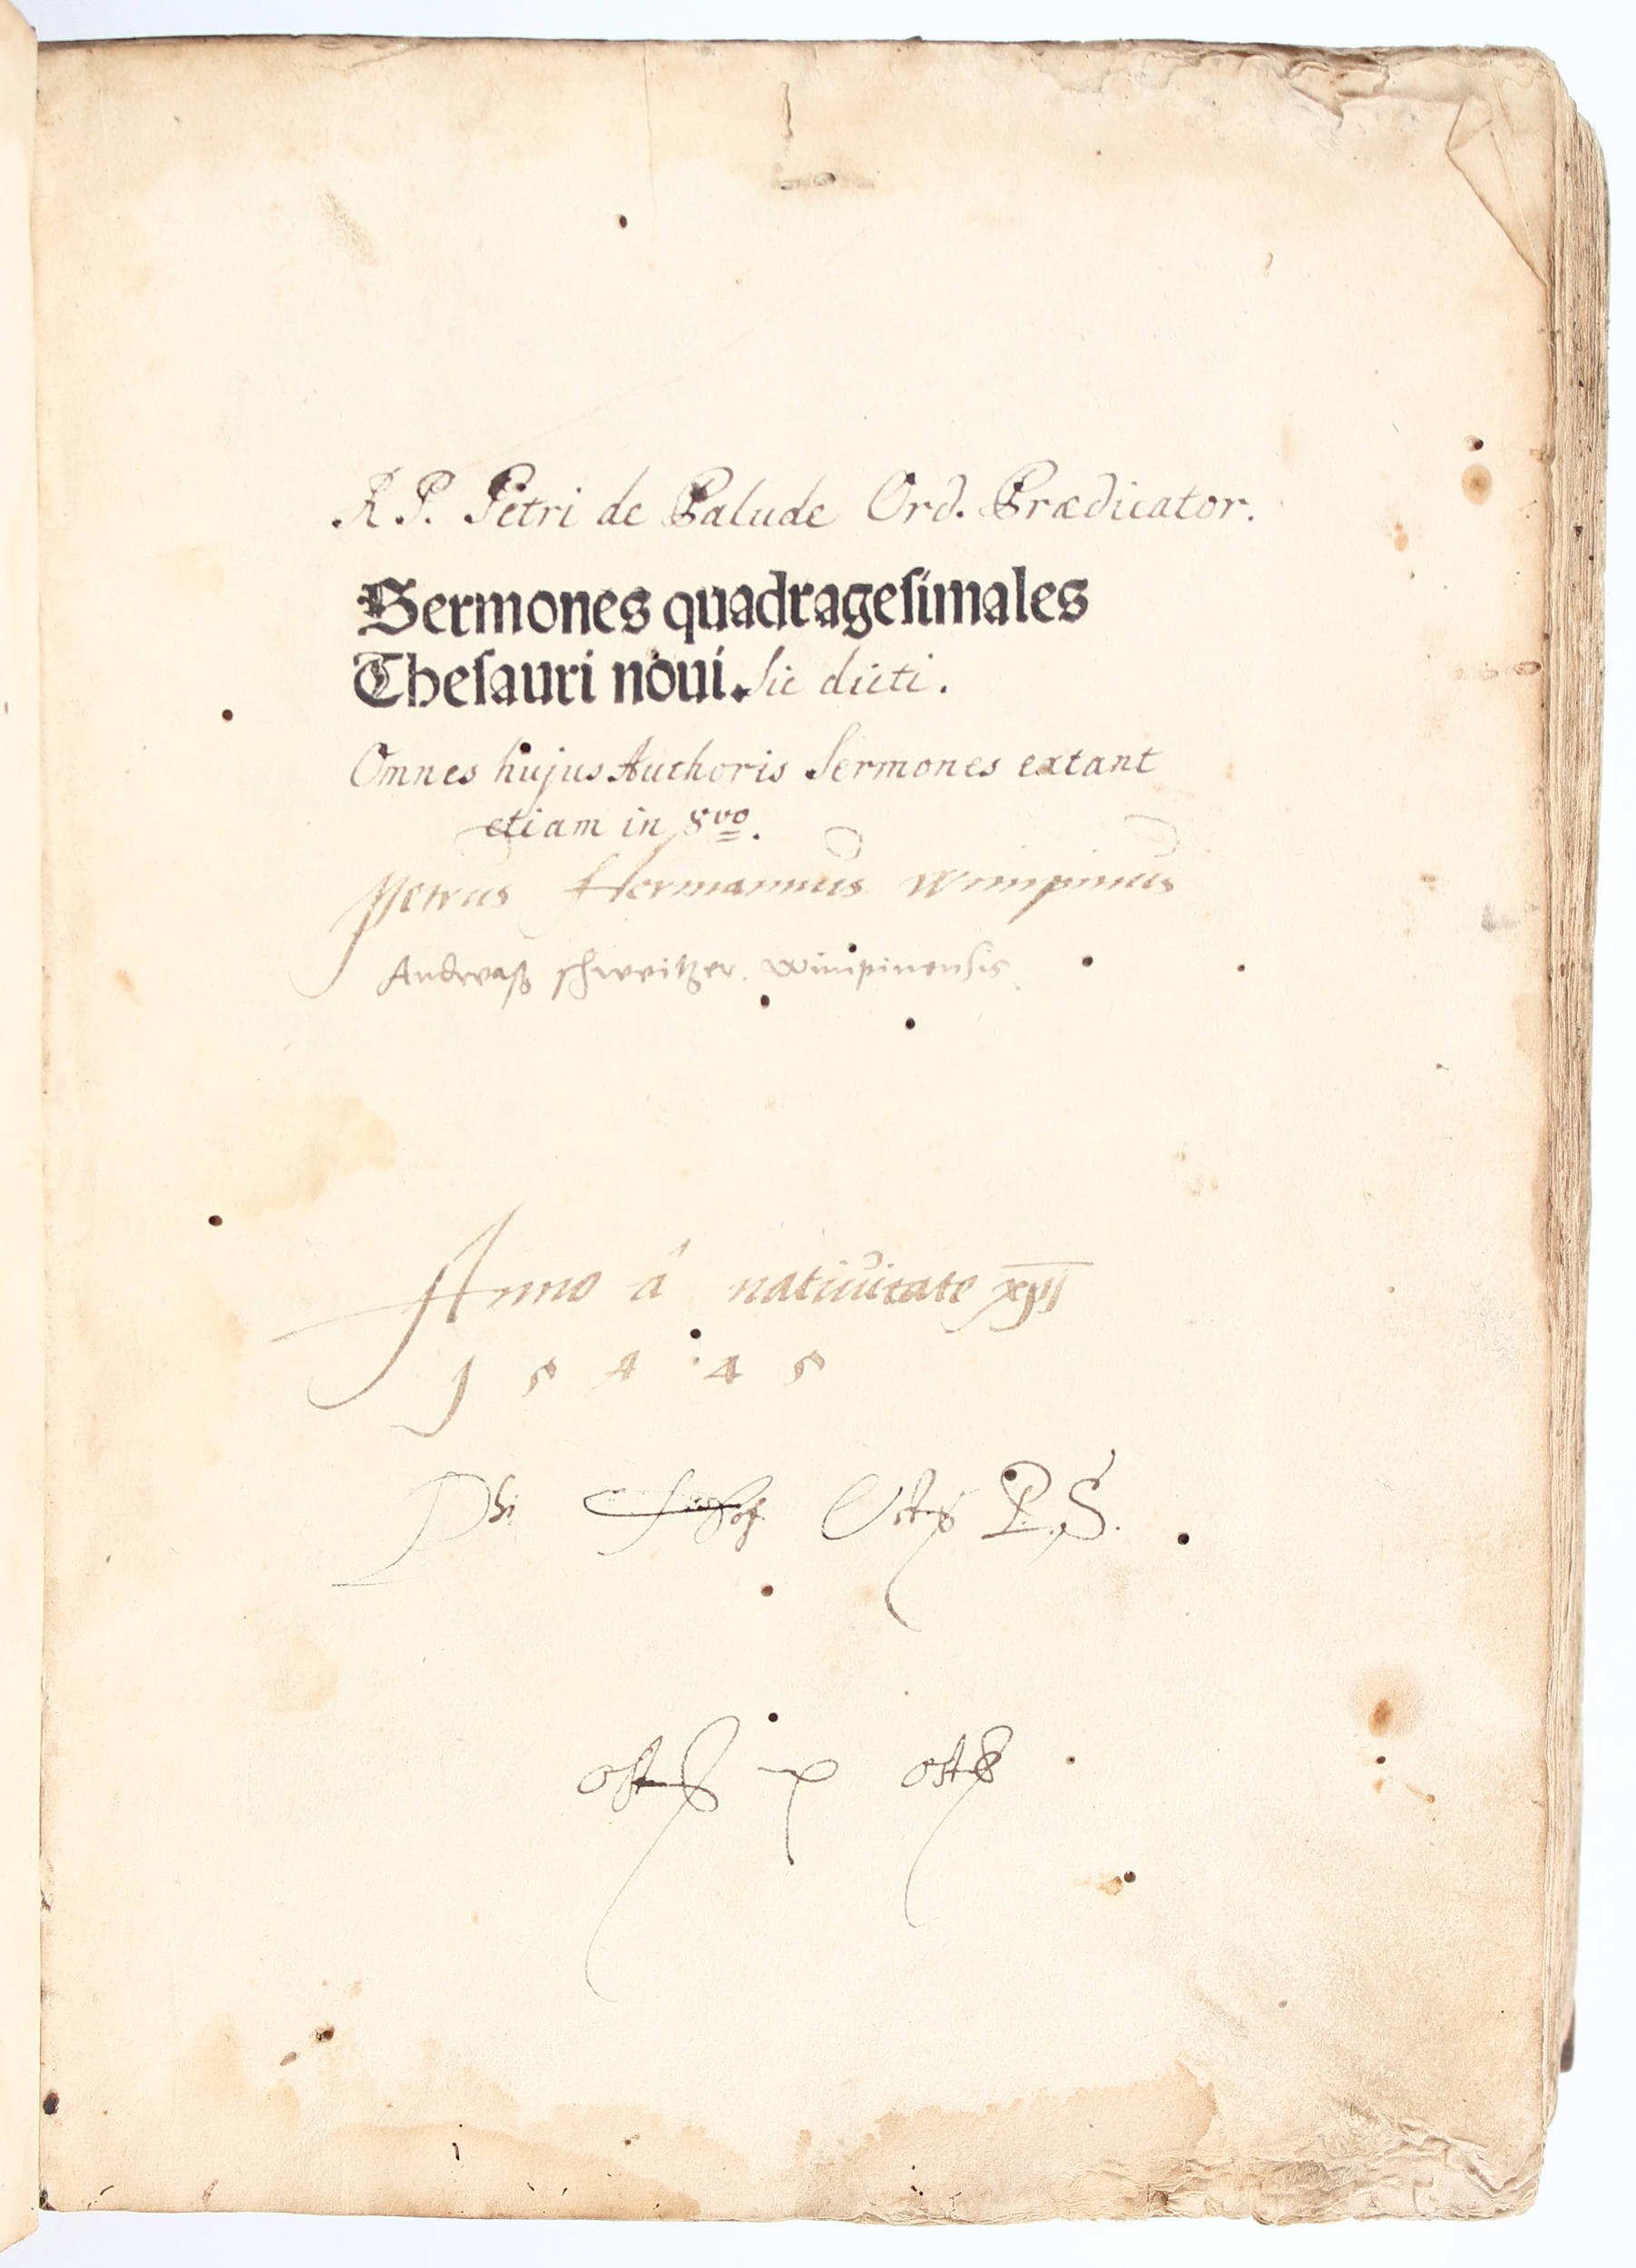 R. P. Petri de Palude Ord. Prædicator.
Sermones quadrageſimales
Theſauri noui. sic dicti.
Omnes hujus Authoris Sermones extant
etiam in 8vo.
Petrus Hermannus Wimpinus
Andreaß schweitzer. Wimpinensis
Anno â natiuitate xpi
1 5 4 4 5
P. S.